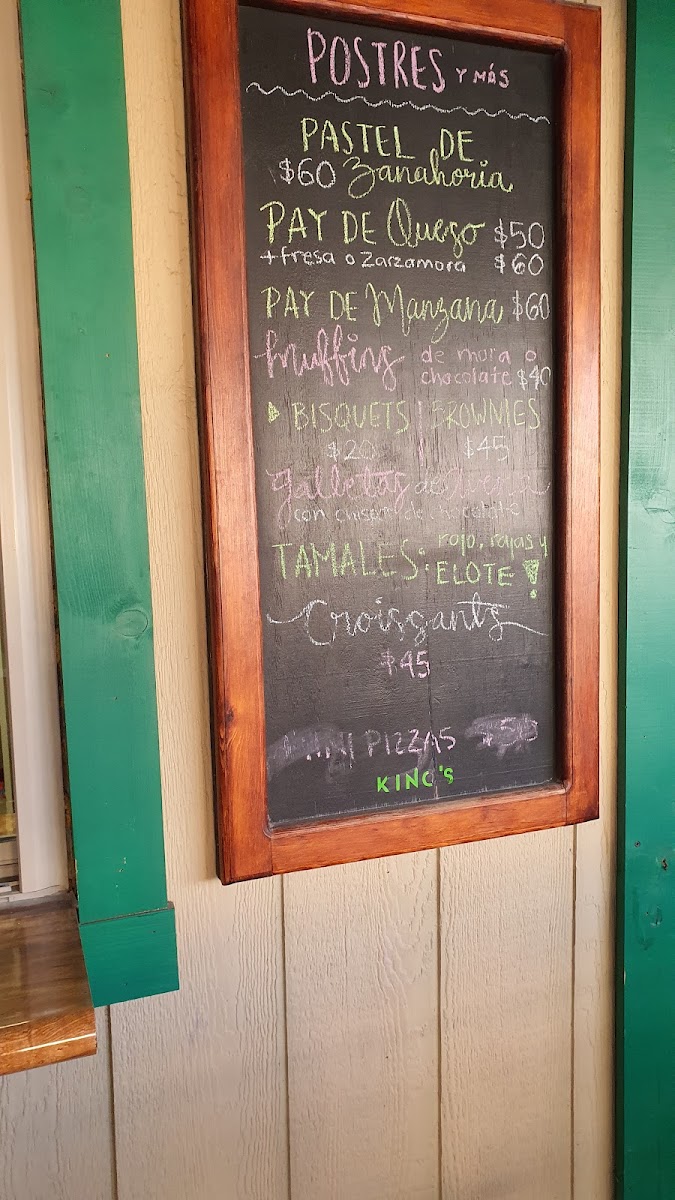 POSTRES Y MÁS
PASTEL DE
$60 Zanahoria
PAY DE Quezo $50
+ fresa o zarzamora $60
PAY DE Manzana $60
muffins de mora o
chocolate $40
BISQUETS | BROWNIES
$20 $45
galletas de avena
con chispas de chocolate
TAMALES: rojo, rajas y
ELOTE!
Croissants
$45
MINI PIZZAS
KING'S